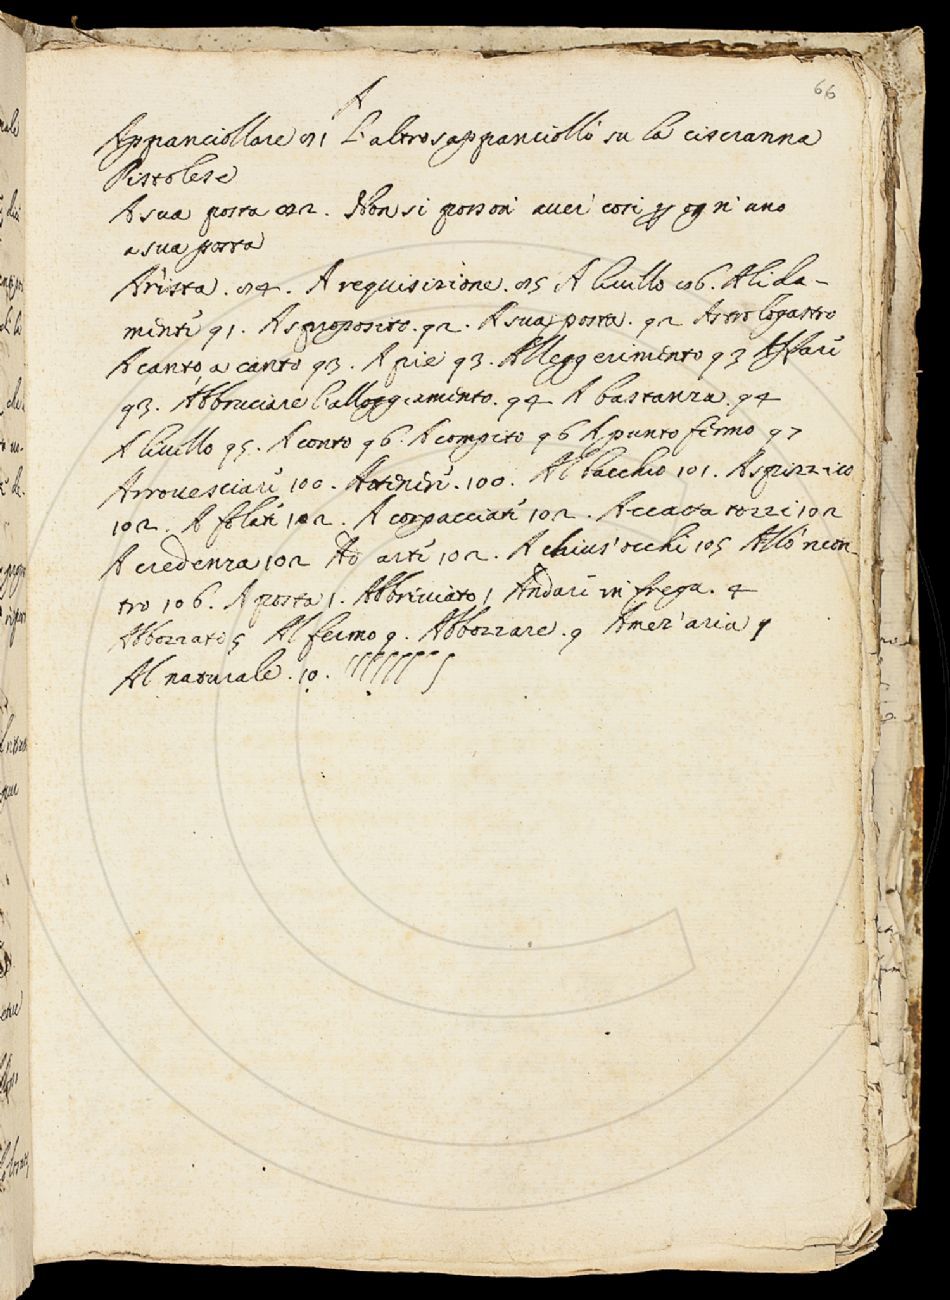 66
A
Appanciollare 81 L'altro s'appanciollò su la ciscranna
Pistolese
A sua posta 82. Non si posson' aver' così p ogn' uno
a sua posta
Arista. 84. A requisizione. 85 A livello 86. Alida-
menti 91. A sproposito. 92. A sua posta. 92 Astrologastro
A canto, a canto 93. A pie 93. Alleggerimento 93 Affari
93. Abbruciare l'alloggiamento. 94 A bastanza. 94
A livello 95. A conto 96. A compito 96 A punto fermo 97
Arrovesciari 100. Attenersi. 100. Al bacchio 101. A spizzico
102. A folati 102. A corpacciati 102. A ccava tozzi 102
A credenza 102 Ad arti 102. A chius' occhi 105 All'incon-
tro 106. A posta 1. Abbriviato 1 Andari in frega. 4
Abbozzato 5 Al fermo 9. Abbozzare. 9 A mez' aria 9
Al naturale. 10.